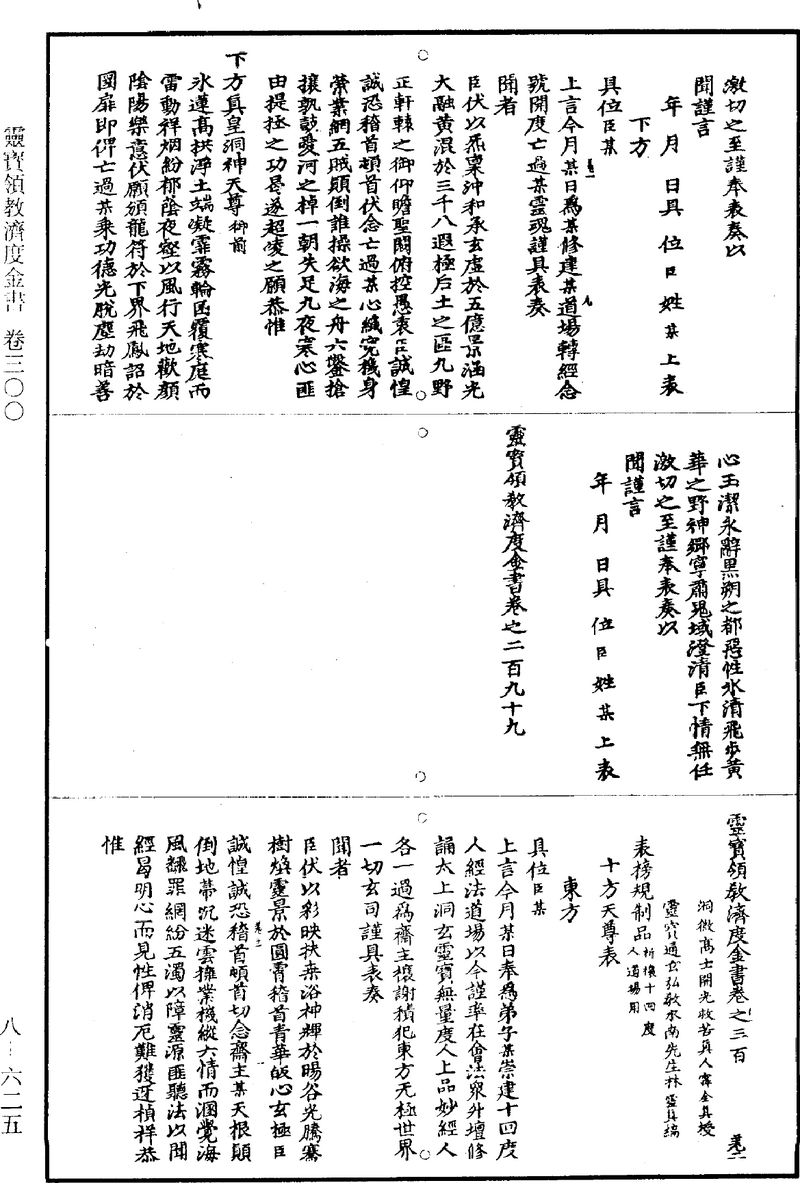 靈寶領教濟度金書 卷三〇〇
八-六二五
激切之至謹奉表奏以
聞謹言
年 月 日具 位 臣 姓 某 上 表
下方
具位臣某
上言今月某日爲某修建某道場轉經念
號開度亡過某靈魂謹具表奏
聞者
臣伏以炁稟沖和承玄虛於五億景涵光
大融黃混於三千八遐極后土之區九野
正軒轅之御仰瞻聖闕俯控愚衷臣誠惶
誠恐稽首頓首伏念亡過某心織宪機身
縈業網五賊顛倒誰操欲海之舟六鑿搶
攘孰鼓愛河之棹一朝失足九夜寒心匪
由提拯之功曷遂超凌之願恭惟
下方真皇洞神天尊御前
氷蓮高拱淨土端凝霏霧輪囷覆寒庭而
雷動祥烟紛郁蔭夜壑以風行天地歡顏
陰陽樂意伏願頒龍符於下界飛鳳詔於
圜扉即俾亡過某乘功德光脫塵劫暗善
心玉潔永辭黑朔之都惡性氷清飛步黃
華之野神鄉寧肅鬼域澄清臣下情無任
激切之至謹奉表奏以
聞謹言
年 月 日具 位 臣 姓 某 上 表
靈寶領教濟度金書卷之二百九十九
靈寶領教濟度金書卷之三百
洞微高士開光救苦真人甯全真授
靈寶通玄弘教水南先生林靈真編
表榜規制品祈禳十四度人道場用
十方天尊表
東方
具位臣某
上言今月某日奉爲弟子某崇建十四度
人經法道場以今謹率在會法衆升壇修
誦太上洞玄靈寶無量度人上品妙經人
各一過爲齋主禳謝積犯東方无極世界
一切玄司謹具表奏
聞者
臣伏以彩映扶桒浴神輝於暘谷光騰騫
樹煥靈景於圓霄稽首青華皈心玄極臣
誠惶誠恐稽首頓首切念齋主某天根顛
倒地蒂沉迷雲擁業機縱六情而溷覺海
風飜罪網紛五濁以障靈源匪聽法以聞
經曷明心而見性俾消厄難獲迓禎祥恭
惟